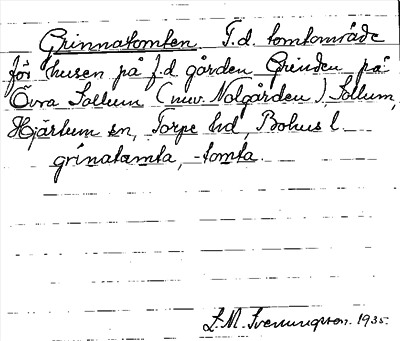 Grinnatomten T.d. tomtområde
för husen på f.d. gården Grinden på
Övra Sollum (nuv. Nolgården) Sollum,
Hjärtum sn, Torpe hd, Bohus l.
grinatamta, -tomta.
L.M. Svenungsson. 1935.